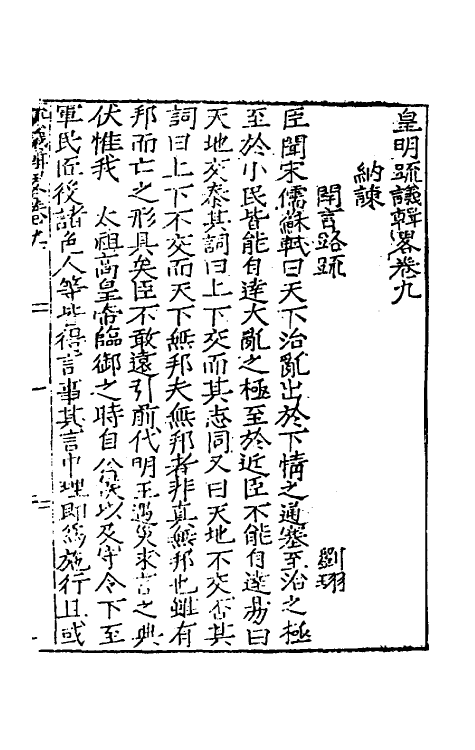 皇明疏議輯畧卷九
納諫
開言路疏 劉珝
臣聞宋儒蘇軾曰天下治亂出於下情之通塞至治之極
至於小民皆能自達大亂之極至於近臣不能自達易曰
天地交泰其詞曰上下交而其志同又曰天地不交否其
詞曰上下不交而天下無邦夫無邦者非真無邦也雖有
邦而亡之形具矣臣不敢遠引前代明王遇災求言之典
伏惟我 太祖高皇帝臨御之時自公侯以及守令下至
軍民匠役諸色人等皆得言事其言中理即為施行且或